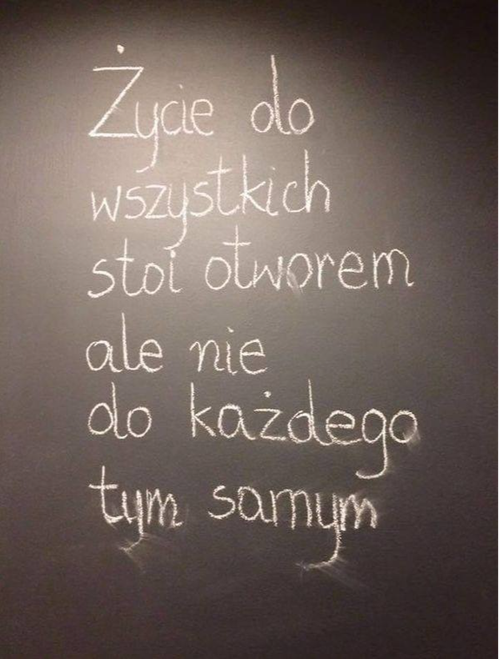 Życie do
wszystkich
stoi otworem
ale nie
do każdego
tym samym